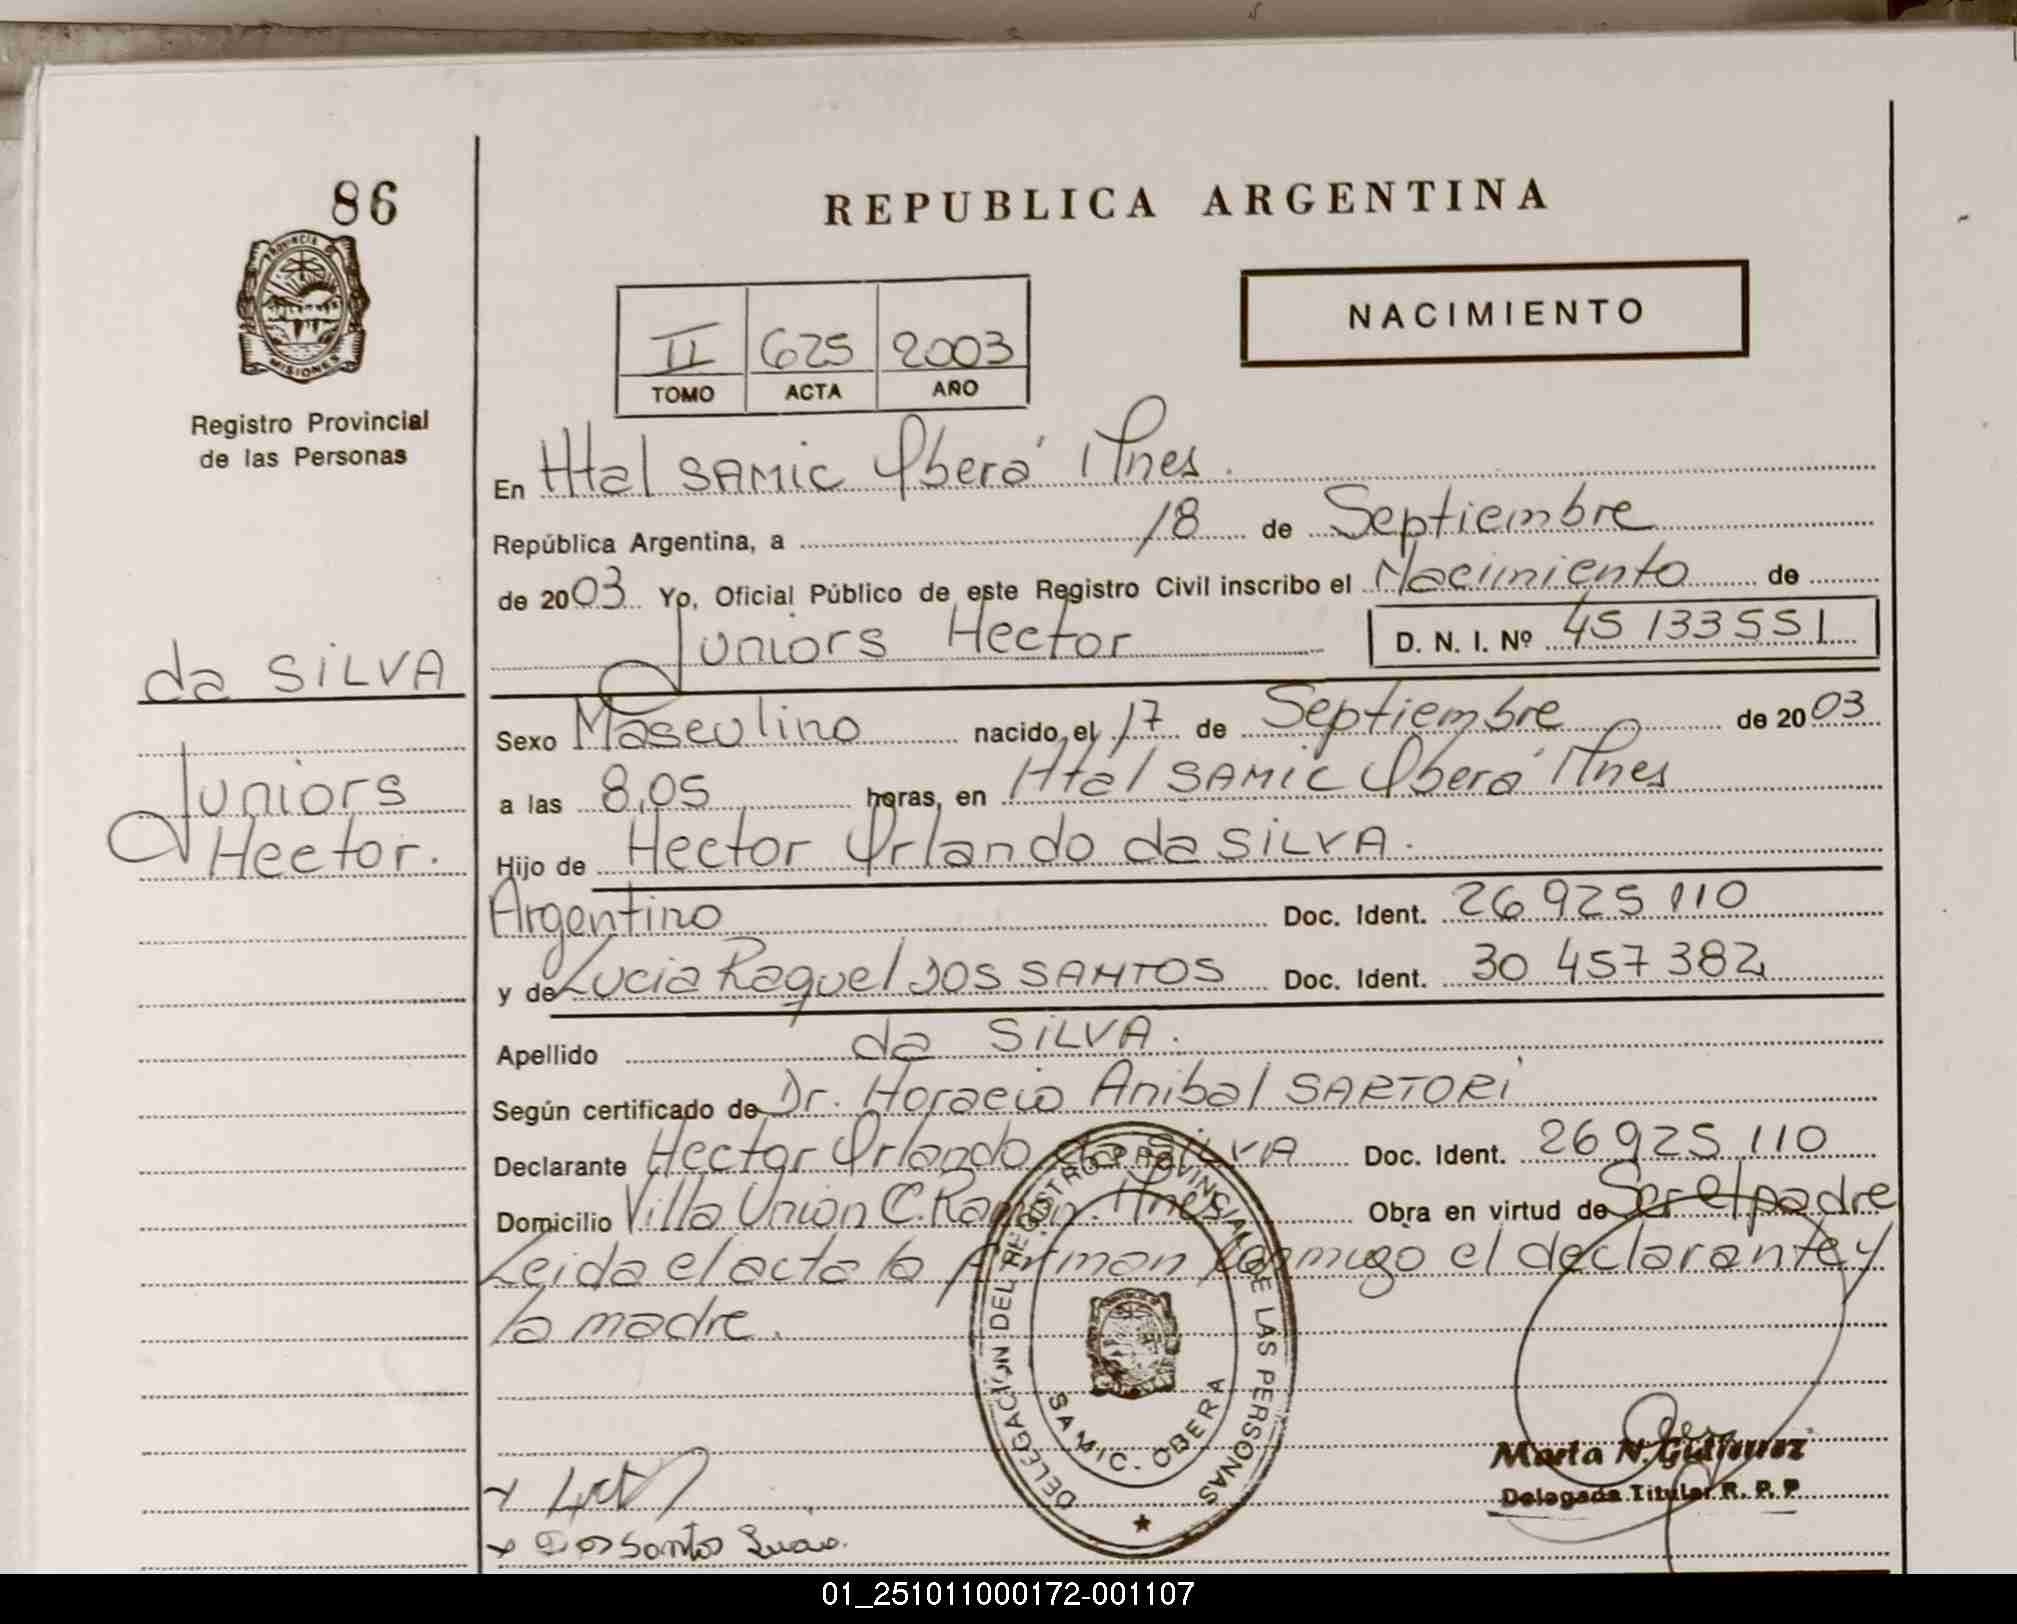 86
REPUBLICA ARGENTINA
PROVINCIA DE
MISIONES
NACIMIENTO
II 625 2003
TOMO ACTA AÑO
Registro Provincial
de las Personas
En Htal SAMIC Oberá Mnes.
República Argentina, a 18 de Septiembre
de 2003 Yo, Oficial Público de este Registro Civil inscribo el Nacimiento de
Juniors Hector D. N. I. Nº 45 133 551
da SILVA
Juniors
Hector.
Sexo Masculino nacido el 17 de Septiembre de 2003
a las 8,05 horas, en Htal SAMIC Oberá Mnes
Hijo de Hector Orlando da SILVA.
Argentino Doc. Ident. 26 925 110
y de Lucia Raquel DOS SANTOS Doc. Ident. 30 457 382
Apellido da SILVA.
Según certificado de Dr. Horacio Anibal SARTORI
Declarante Hector Orlando da SILVA Doc. Ident. 26 925 110
Domicilio Villa Union C. Ramón. Mnes Obra en virtud de Ser el padre
Leida el acta la firman conmigo el declarante y
la madre.
DELEGACION DEL REGISTRO PROVINCIAL DE LAS PERSONAS
SAMIC. OBERA
Marta N. Gutierrez
Delegada Titular R. P. P
Dos Santos Lucia.
01_251011000172-001107